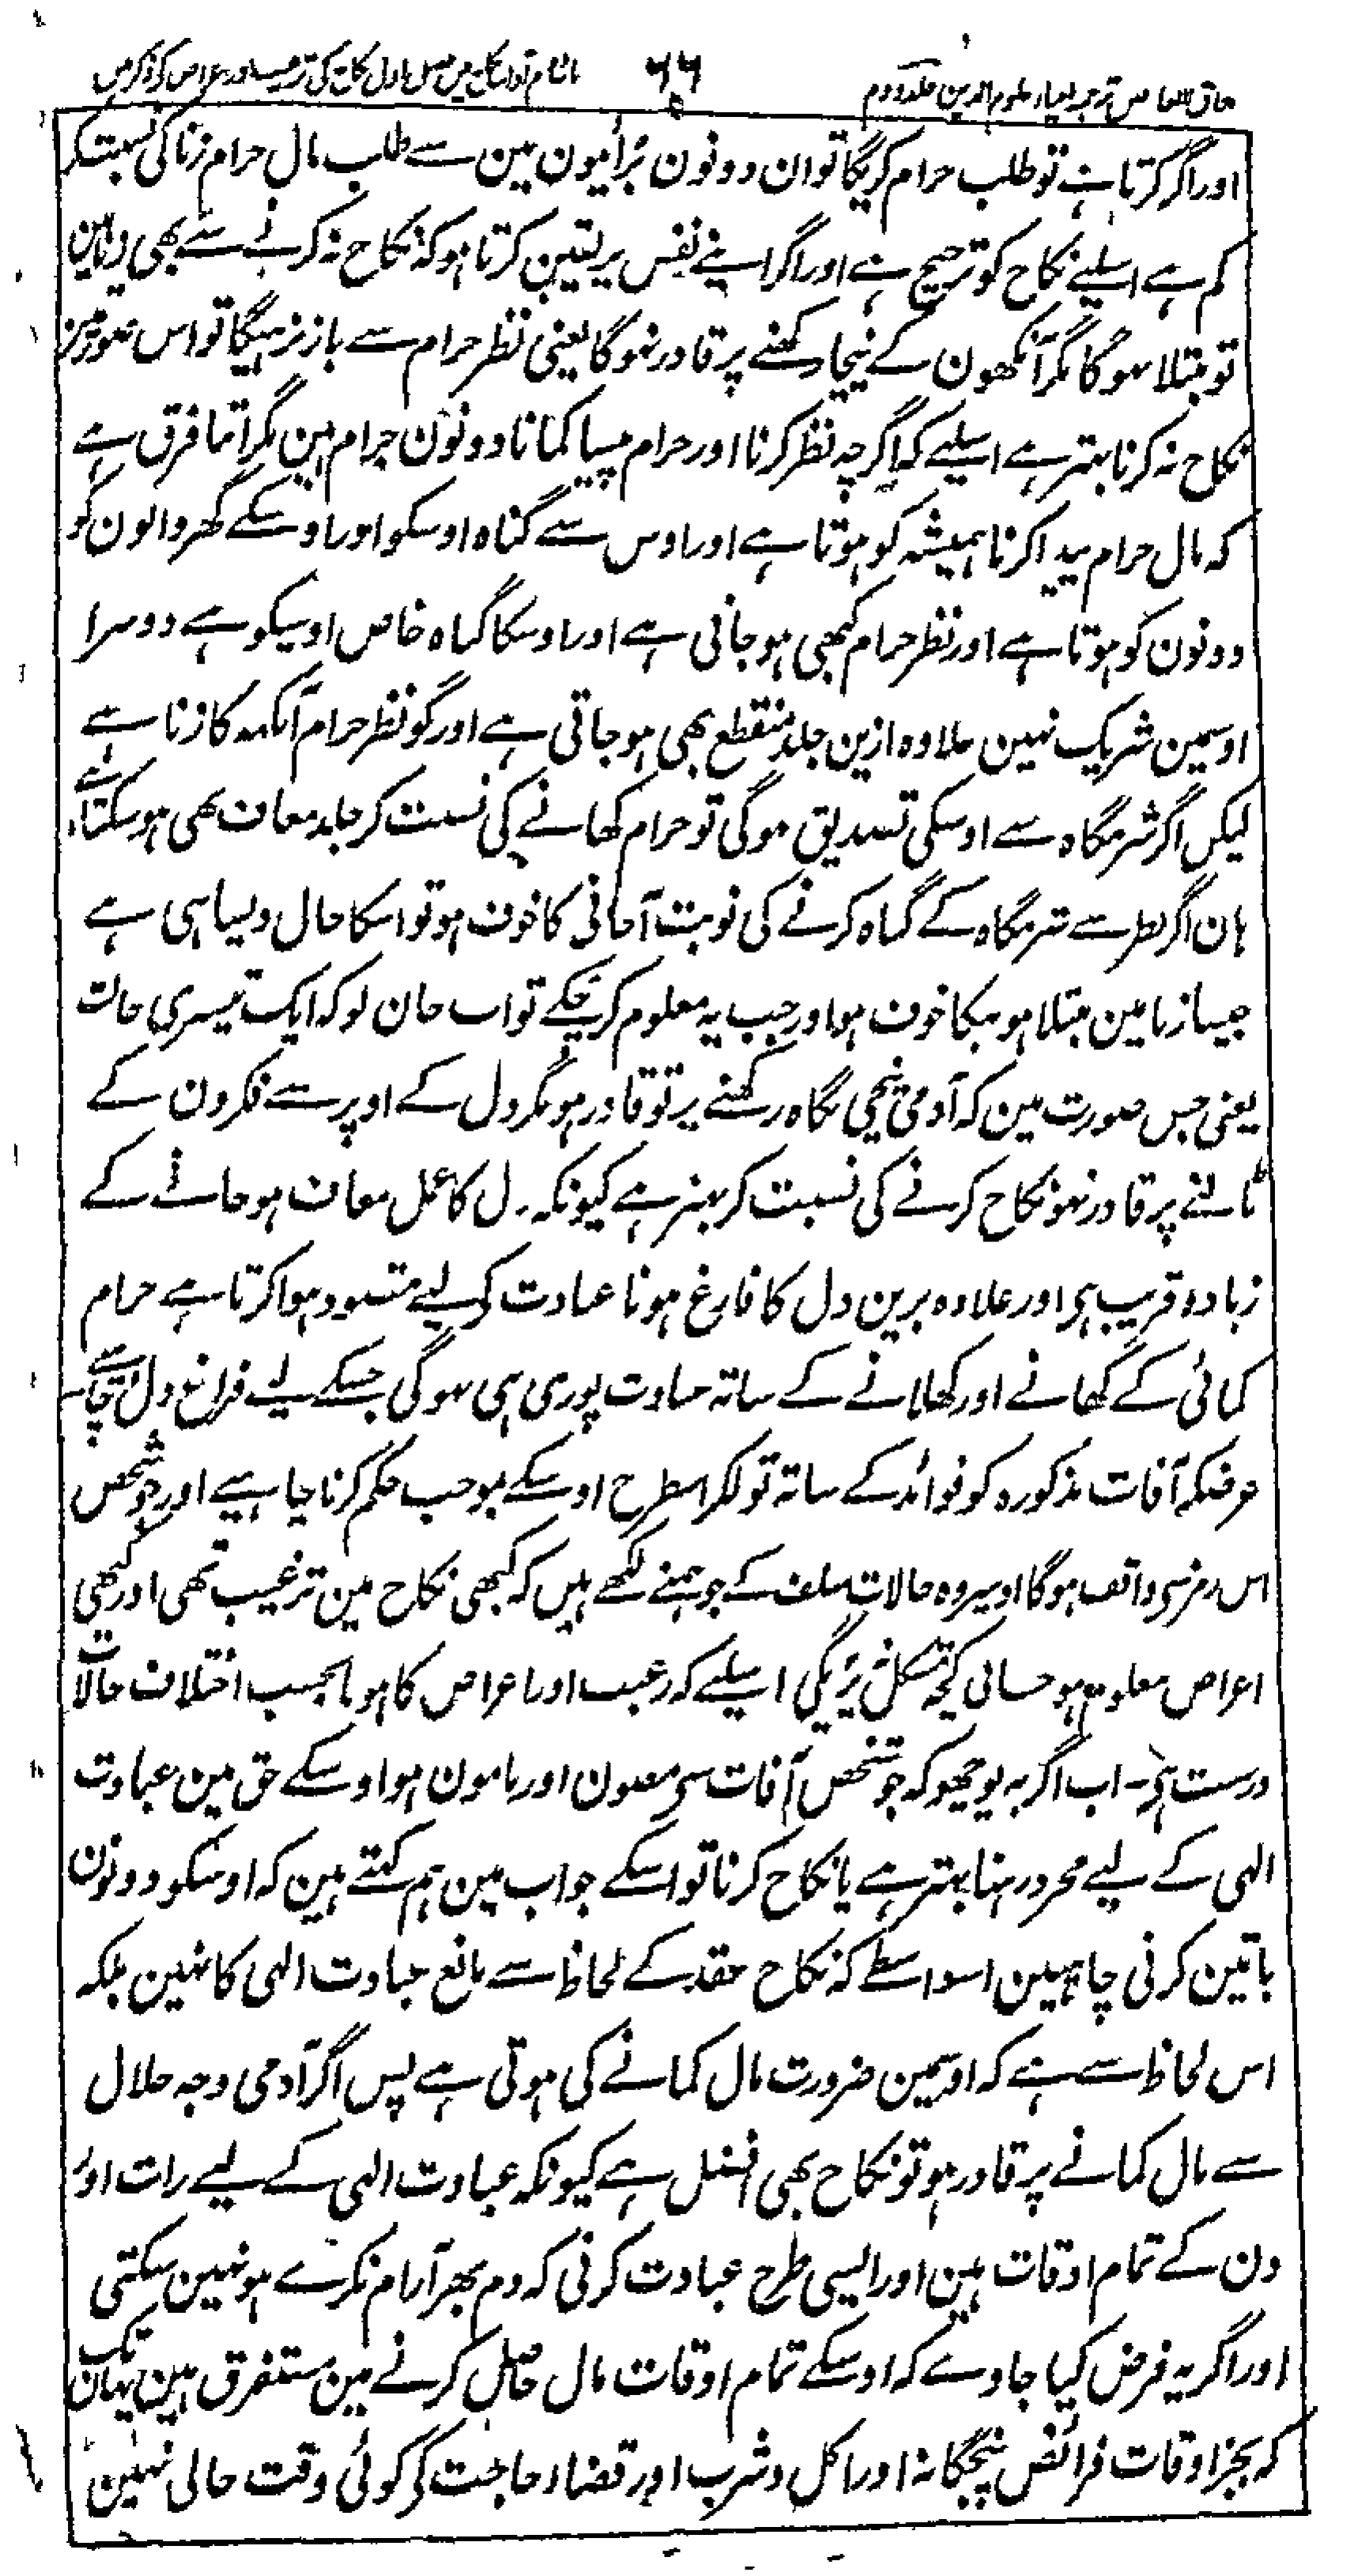 ۶۶
اور اگر کرتا ہے تو طلب حرام کریگا تو ان دونون برائیون مین سے طلب مال حرام زنا کی نسبت کر
کم ہے اسلیے نکاح کو ترجیح ہے اور اگر اپنے نفس پر یقین کرتا ہو کہ نکاح نہ کرنے سے بھی زنا مین
تو مبتلا نہوگا مگر آنکھون کے نیچا رکھنے پر قادر نہوگا یعنی نظر حرام سے باز نرہیگا تو اس صورت مین
نکاح نہ کرنا بہتر ہے اسلیے کہ اگرچہ نظر کرنا اور حرام پیسا کمانا دونون حرام ہین مگر اتنا فرق ہے
کہ مال حرام پیدا کرنا ہمیشہ کو ہوتا ہے اور اوس سے گناہ اوسکو اور اوسکے گھر والون کو
دونون کو ہوتا ہے اور نظر حرام کبھی ہو جاتی ہے اور اوسکا گناہ خاص اوسیکو ہے دوسرا
اوسمین شریک نہین علاوہ ازین جلد منقطع بھی ہو جاتی ہے اور گو نظر حرام آنکھ کا زنا ہے
لیکن اگر شرمگاہ سے اوسکی تصدیق ہوگی تو حرام کھانے کی نسبت کر جلد معاف بھی ہو سکتا ہے
ہان اگر نظر سے شرمگاہ کے گناہ کرنے کی نوبت آجانی کا خوف ہو تو اسکا حال ویسا ہی ہے
جیسا زنا مین مبتلا ہونیکا خوف ہو اور جب یہ معلوم کر چکے تو اب جان لو کہ ایک تیسری حالت
یعنی جس صورت مین کہ آدمی نیچی نگاہ رکھنے پر تو قادر ہو مگر دل کے اوپر سے فکرون کے
ٹالنے پر قادر نہو نکاح کرنے کی نسبت کر بہتر ہے کیونکہ دل کا عمل معاف ہو جانے کے
زیادہ قریب ہی اور علاوہ برین دل کا فارغ ہونا عبادت کے لیے مقصود ہوا کرتا ہے حرام
کمائی کے کھانے اور کھلانے کے ساتہ عبادت پوری ہی نہوگی جسکے لیے فراغ دل چاہیے
غرضکہ آفات مذکورہ کو فوائد کے ساتہ تولکر اسطرح اوسکے بموجب حکم کرنا چاہیے اور جو شخص
اس رمز سی واقف ہوگا اوسپر وہ حالات سلف کے جو ہمنے لکھے ہیں کہ کبھی نکاح مین ترغیب تھی اور کبھی
اعراض معلوم ہو جانی کچھ مشکل نہ پڑیگی اسلیے کہ رغبت اور اعراض کا ہونا بحسب اختلاف حالات
درست ہی۔ اب اگر یہ پوچھو کہ جو شخص آفات سی مصون اور مامون ہو اوسکے حق مین عبادت
الہی کے لیے مجرد رہنا بہتر ہے یا نکاح کرنا تو اسکے جواب مین ہم کہتے ہین کہ اوسکو دونون
باتین کرنی چاہیین اسواسطے کہ نکاح عقد کے لحاظ سے مانع عبادت الہی کا نہین بلکہ
اس لحاظ سے ہے کہ اوسمین ضرورت مال کمانے کی ہوتی ہے پس اگر آدمی وجہ حلال
سے مال کمانے پر قادر ہو تو نکاح بھی افضل ہے کیونکہ عبادت الہی کے لیے رات اور
دن کے تمام اوقات ہین اور ایسی طرح عبادت کرنی کہ دم بھر آرام نکرے ہو نہین سکتی
اور اگر یہ فرض کیا جاوے کہ اوسکے تمام اوقات مال حاصل کرنے مین مستغرق ہین یہان تک
کہ بجز اوقات فرائض پنجگانہ اور اکل و شرب اور قضاء حاجت کی کوئی وقت خالی نہین